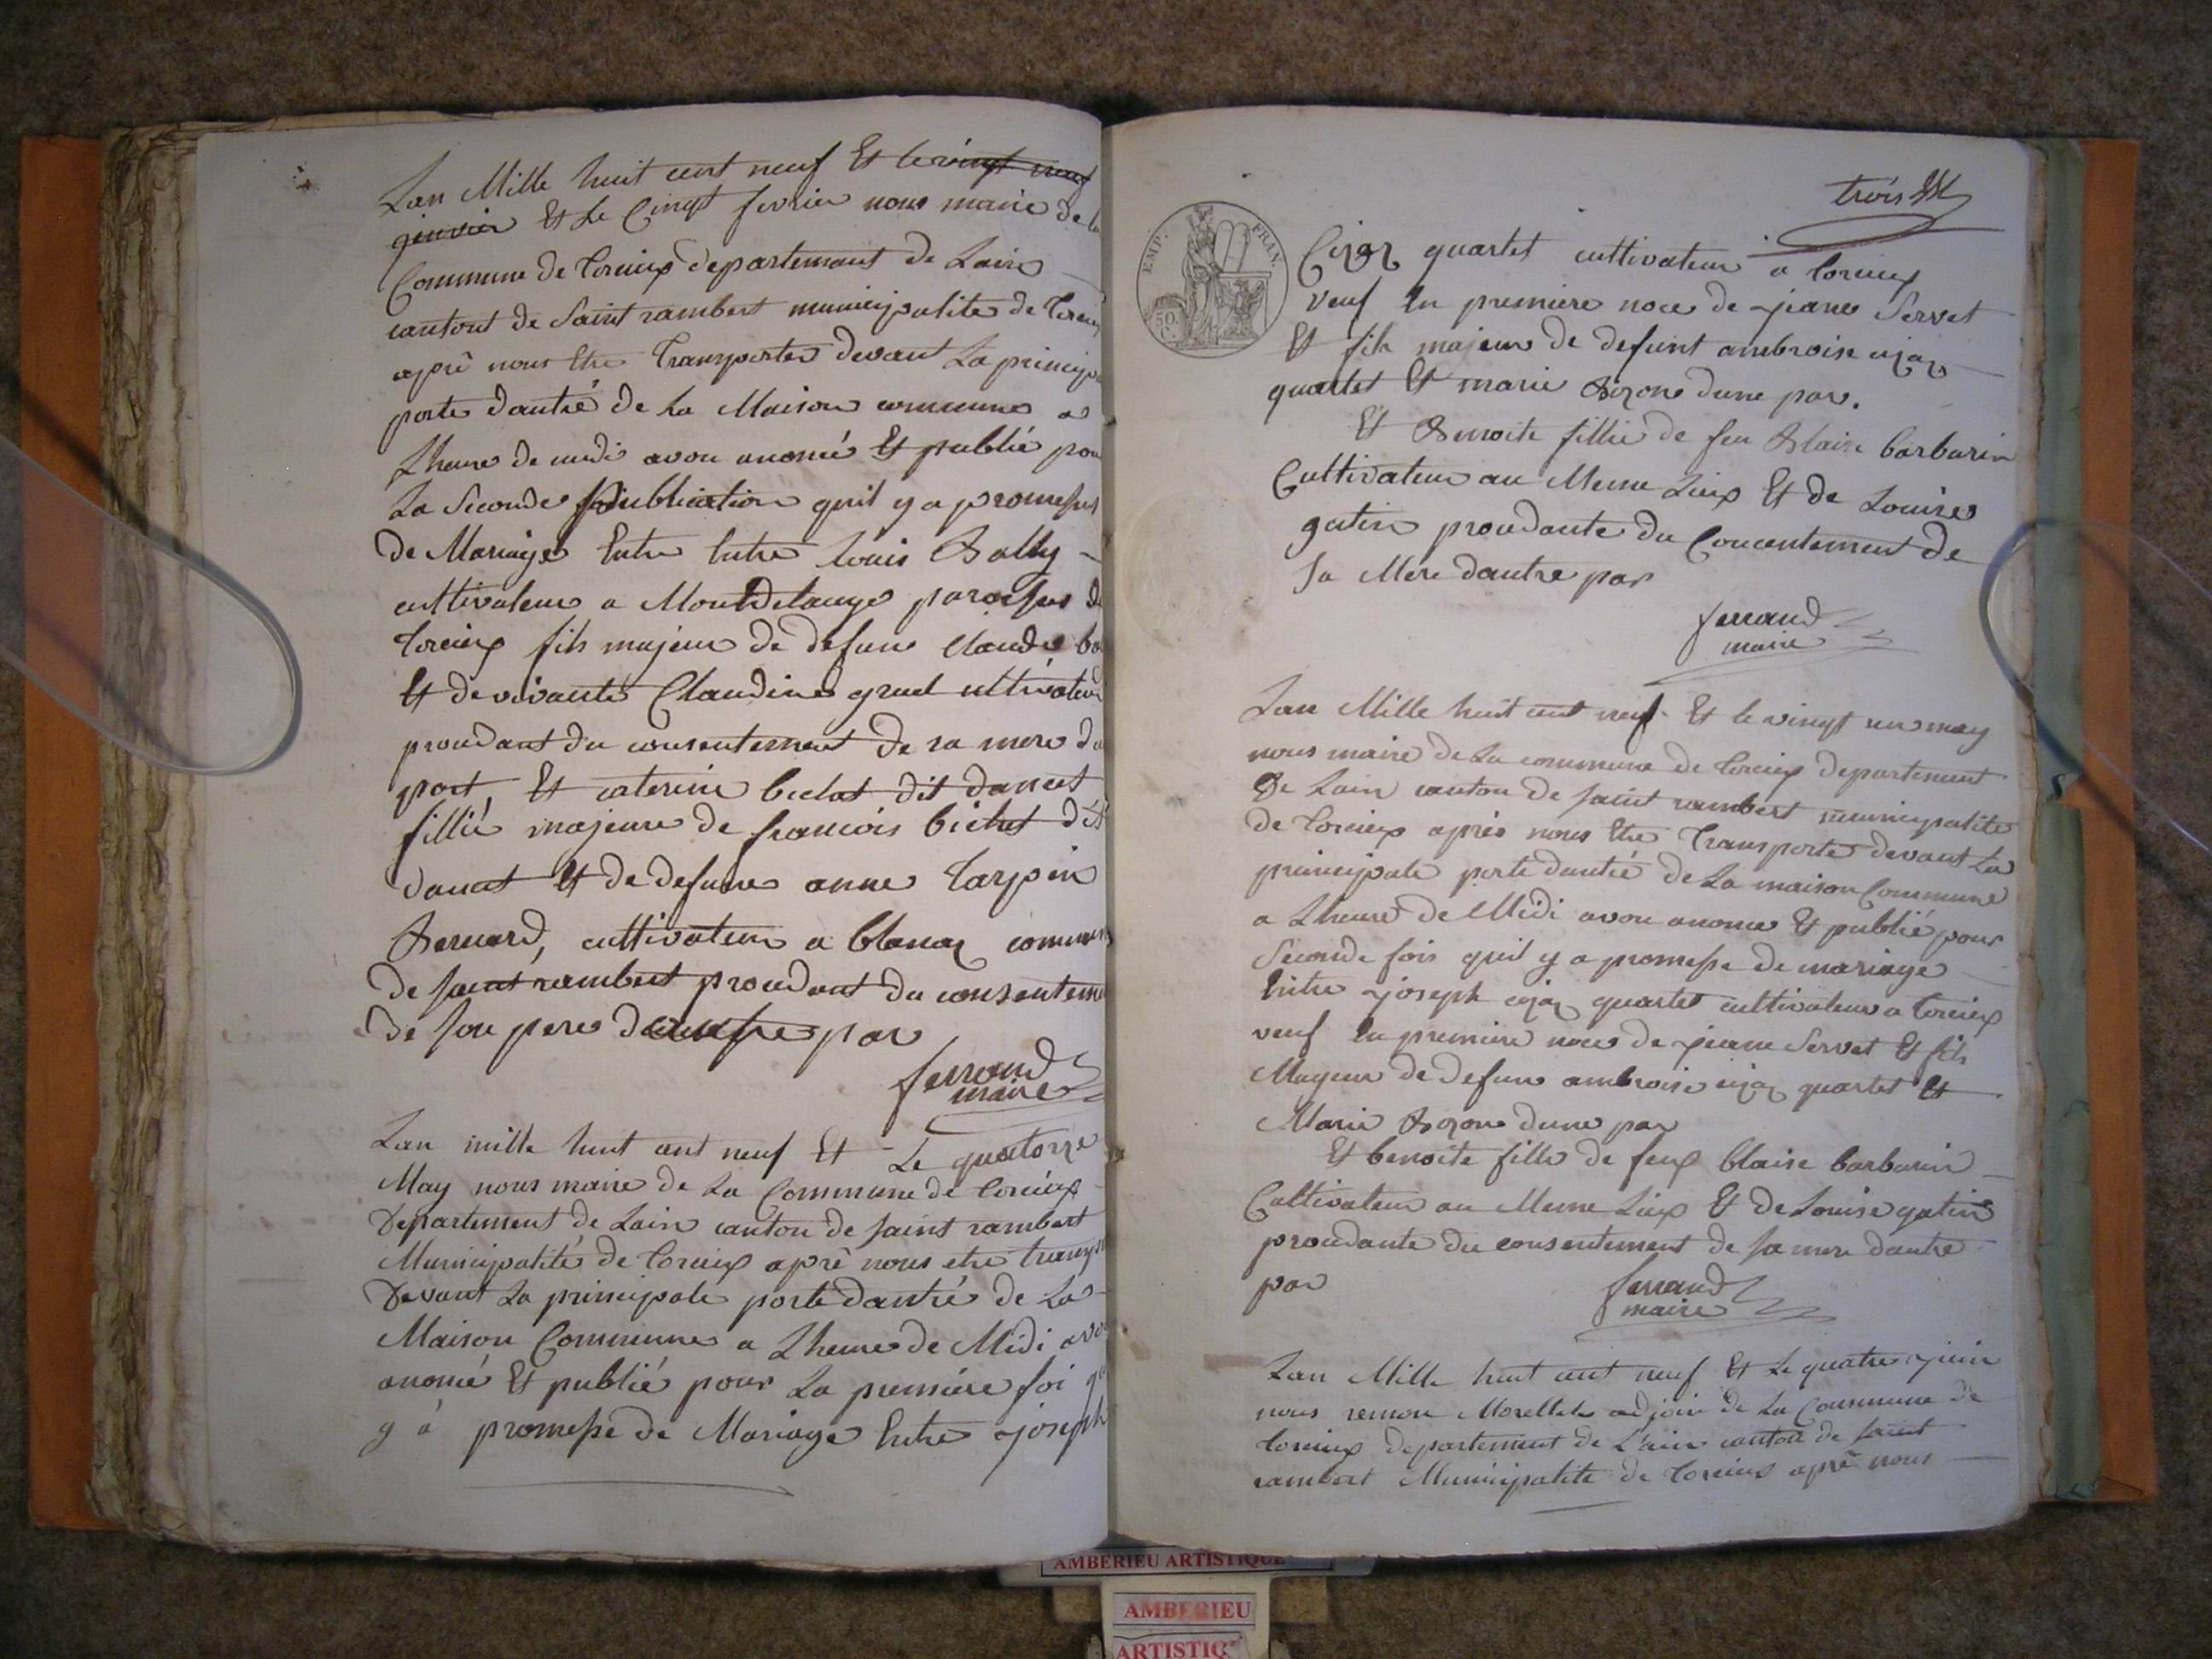 Lan Mille huit cent neuf Et le vingt neuf
genvier Et Le Cinqt fevrier nous maire de la
Commune de Torcieux departemant de Lain
cantont de Saint rambert municipalite de Torcieux
aprè nous Etre Transportes devant La principa
porte dantré de La Maison commune a
Lheure de midi avon anoncé Et publié pour
La Seconde publication quil y a promesses
de Mariage Entre Entre Louis Bolly
cultivateur a Montdelange paroisse de
Torcieux fils majeur de defun Claude bo
Et de vivante Claudine gruel cultivateur
procudant du consentement de sa mere du
part Et caterine bichat dit dancet
fillié majeure de francois bichat dit
dancet Et de defune anne Tarpin
Bernard, cultivateur a blanaz commune
de saint rambert procudant du consenteme
de son pere dautre par
ferrand
maire
Lan mille huit cent neuf Et Le quatorze
May nous maire de La Commune de Torcieux
Departement de Lain canton de saint rambert
Municipalité de Torcieux aprè nous etre transp
Devant La principale porte dantré de La
Maison Commune a Lheure de Midi avo
anoncé Et publié pour La premiére foi q
y à promesse de Mariage Entre joseph
trois
EMP. FRAN.
50 C.
quartet cultivateur a Torcieux
veuf En premiere noce de jeane Servet
Et fils majeur de defunt ambroise cijaz
quartet Et marie Bozone dune par.
Et Benoite fillie de feu Blaise barbarin
Cultivateur au Meme Lieux Et de Louise
gatin procudante du Concentement de
sa Mere dautre par
ferrand
maire
Lan Mille huit cent neuf Et le vingt un may
nous maire de La commune de Torcieux departement
De Lain canton de saint rambert municipalite
de Torcieux après nous Etre Transportes devant La
principale porte dantré de La maison Commune
a Lheure de Midi avon anonce Et publié pour
Seconde fois quil y a promesse de mariage
Entre joseph cijaz quartet cultivateur a Torcieux
veuf En premiere noce de jeane Servet Et fils
Mageur de defun ambroise cijaz quartet Et
Marie Bozone dune par
Et benoite fille de feux blaise barbarin
Cultivateur au Meme Lieux Et de Louise gatin
procudante du consentement de sa mere dautre
par
ferrand
maire
Lan Mille huit cent neuf Et Le quatre juin
nous remon Morellet adjoin de La Commune de
Torcieux departement de L'ain canton de saint
rambert Municipalite de Torcieux aprè nous
AMBERIEU ARTISTIQUE
AMBERIEU
ARTISTIQ